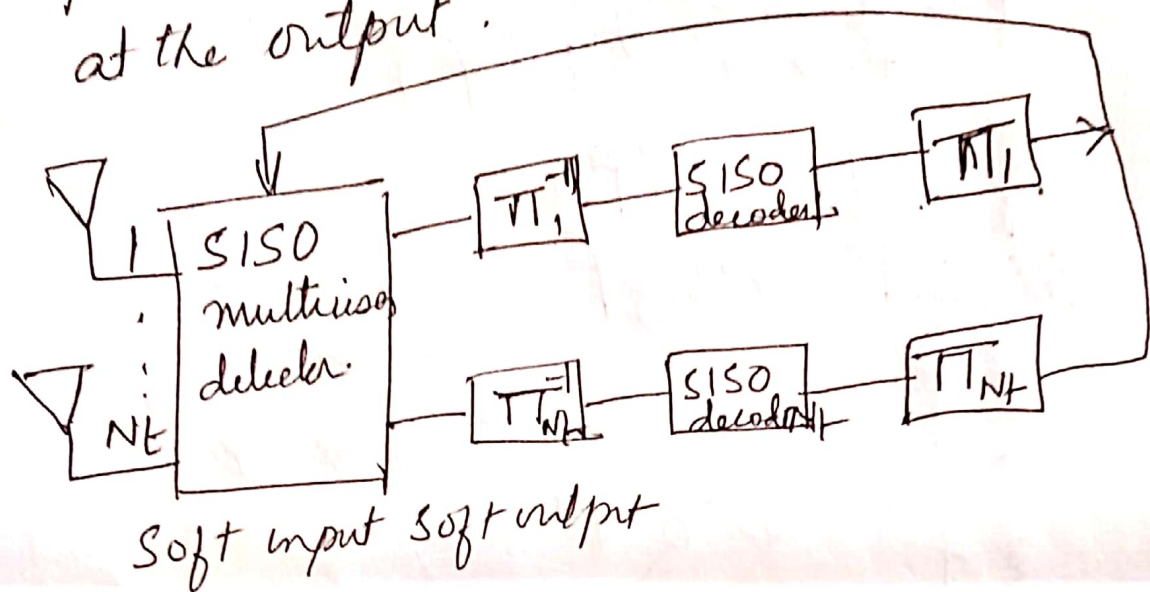 at the output.
1
SISO
multiuser
detector.
Nt
π₁⁻¹
SISO
decoder 1
π₁
π Nt⁻¹
SISO
decoder Nt
π Nt
Soft input Soft output